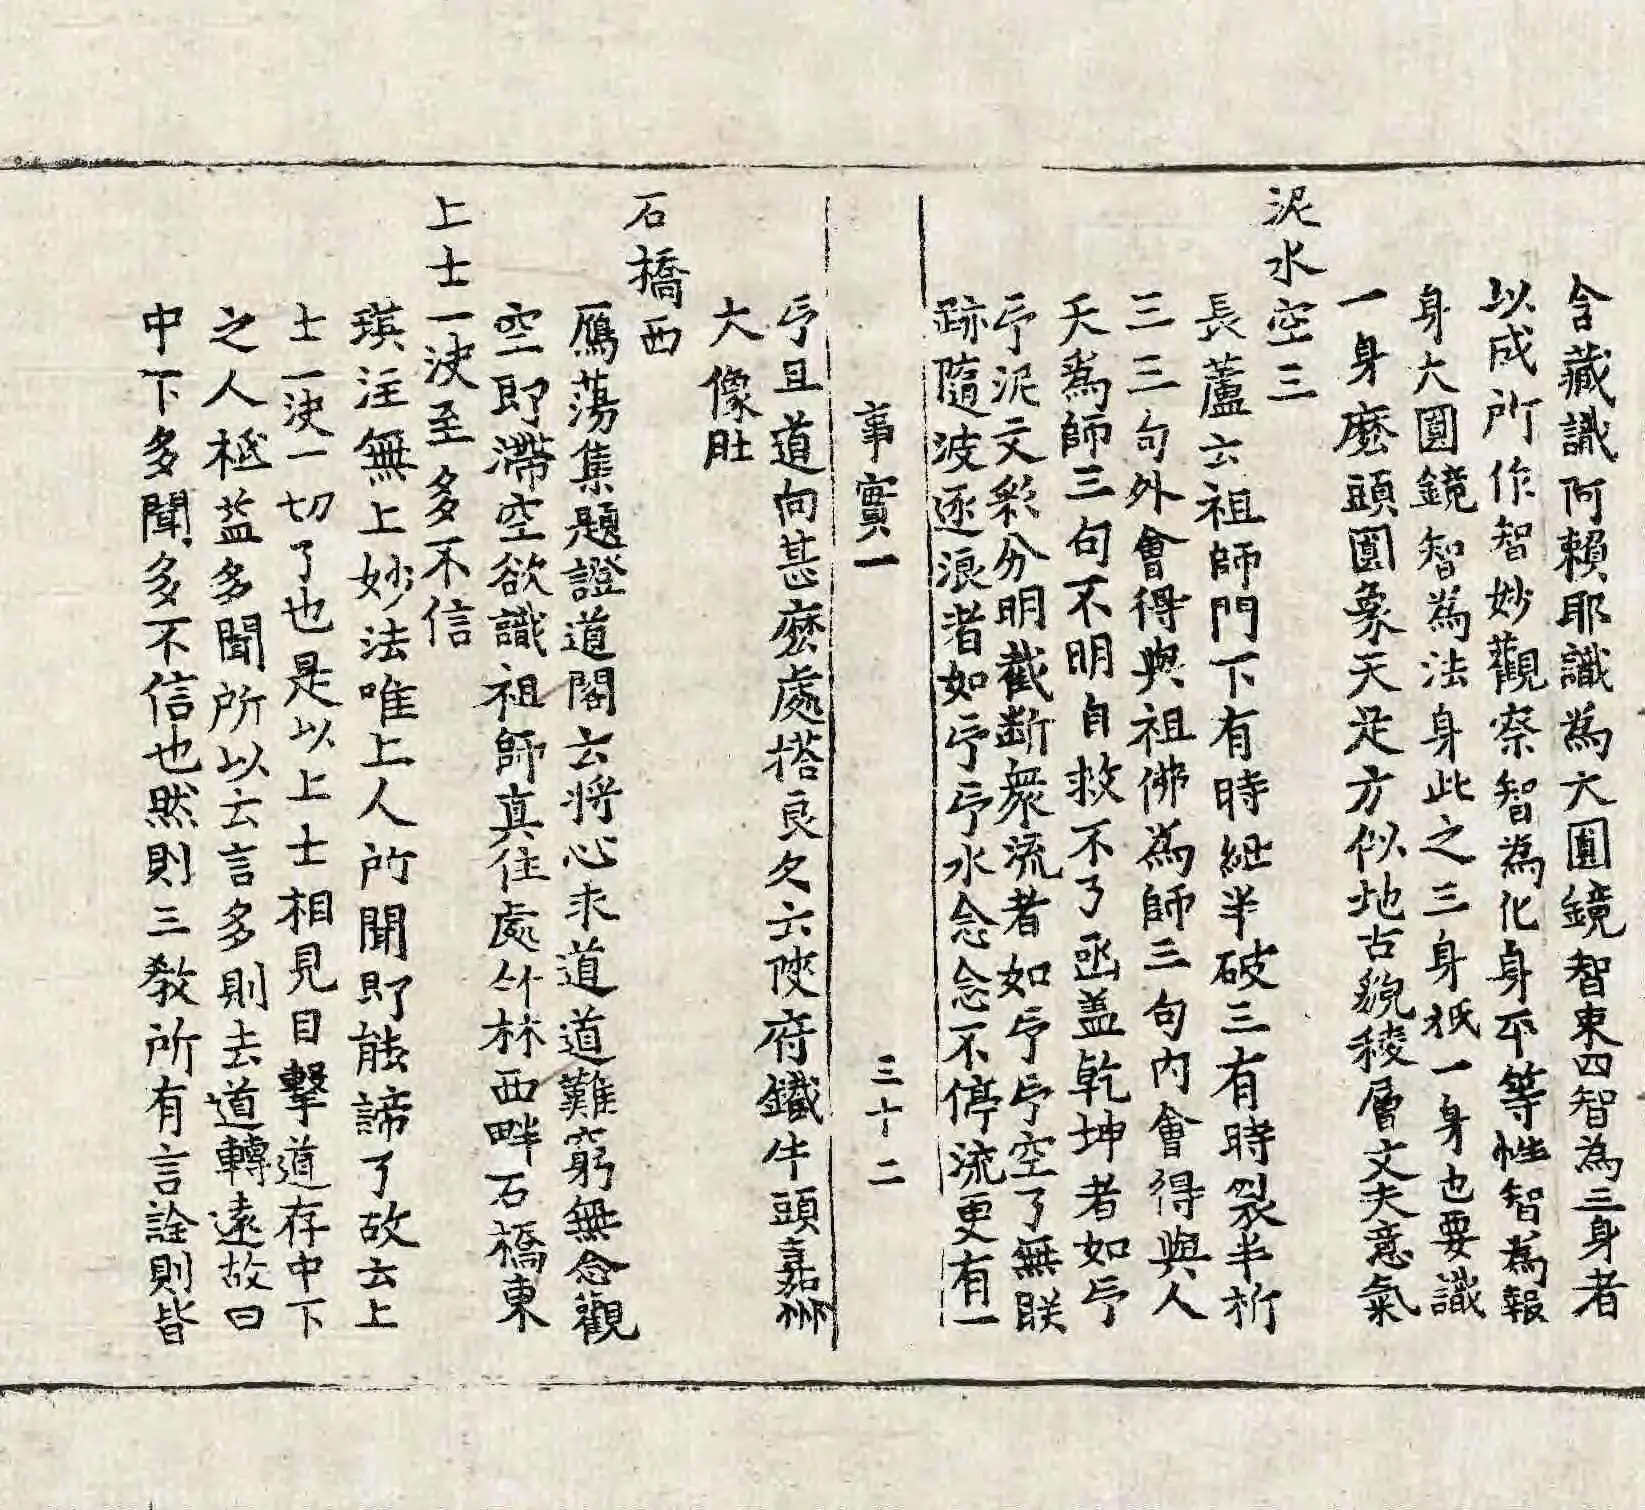 含藏識阿賴耶識為大圓鏡智束四智為三身者
以成所作智妙觀察智為化身平等性智為報
身大圓鏡智為法身此之三身秖一身也要識
一身麼頭圓象天足方似地古貌稜層丈夫意氣
泥水空三
長蘆云祖師門下有時紐半破三有時裂半析
三三句外會得與祖佛為師三句內會得與人
天為師三句不明自救不了函盖乾坤者如印
印泥文彩分明截断衆流者如印印空了無朕
跡隨波逐浪者如印印水念念不停流更有一
事實一 三十二
印且道向甚麽處搭良久云陝府鐵牛頭嘉州
大像肚
石橋西
鴈蕩集題證道閣云將心求道道難窮無念觀
空即滯空欲識祖師真住處竹林西畔石橋東
上士一决至多不信
琪注無上妙法唯上人所聞即能諦了故云上
士一决一切了也是以上士相見目擊道存中下
之人極益多聞所以云言多則去道轉遠故曰
中下多聞多不信也然則三教所有言詮則皆